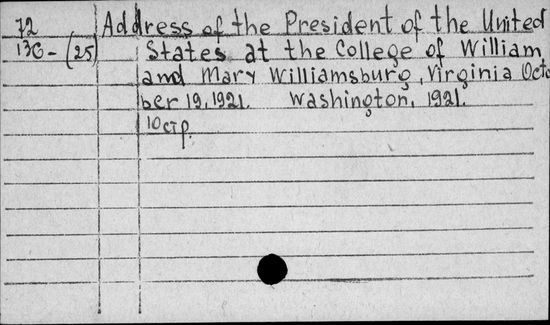 72 Address of the President of the United
13C-(25) States at the College of William
and Mary Williamsburg, Virginia Octo
ber 19, 1921. Washington, 1921.
10cτp.